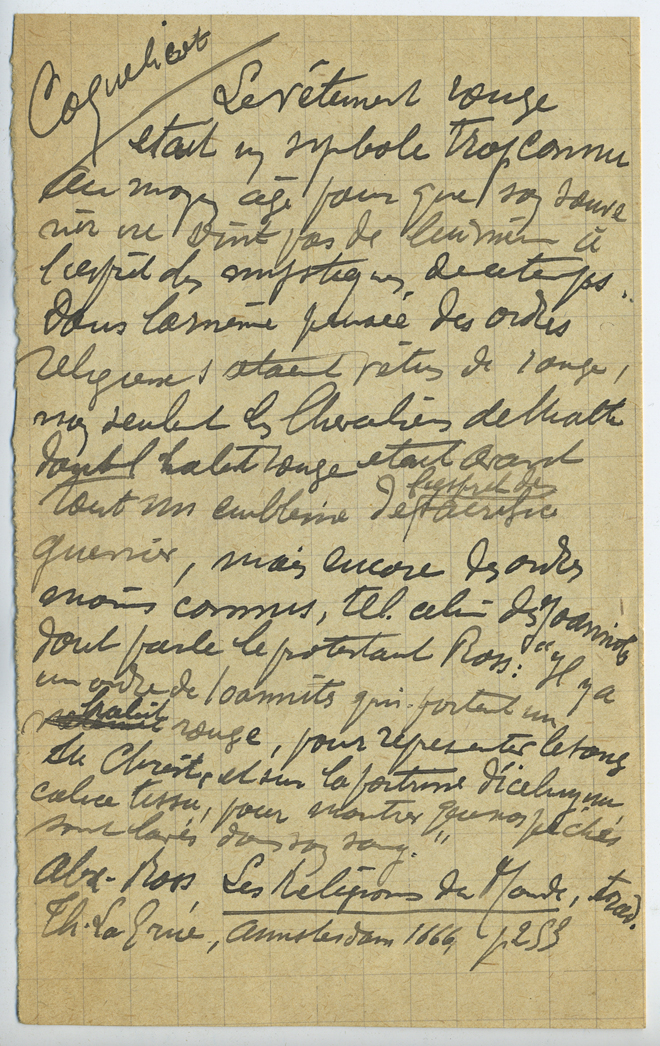 Coquelicot
Le vêtement rouge
etait un symbole trop connu
au moyen âge pour que son souve
nir ne vint pas de lui même à
l'esprit des mystiques de ce temps.
Dans la même pensée des ordres
religieux etaient vêtus de rouge,
non seulent les Chevaliers de Malte
dont l'habit rouge etait avant
tout un emblème de l'esprit de sacrifice
guerrier, mais encore des ordres
moins connus, tel celui des Joannites
dont parle le protestant Ross: "Il y a
un ordre de Ioannites qui portent un
habit rouge, pour representer le sang
du Christ, et sur la poitrine d'iceluy un
calice tissu, pour montrer que nos péchés
sont lavés dans son sang."
Alex. Ross Les Religions du Monde, trad.
Th. La Grue, Amsterdam 1666, p. 253